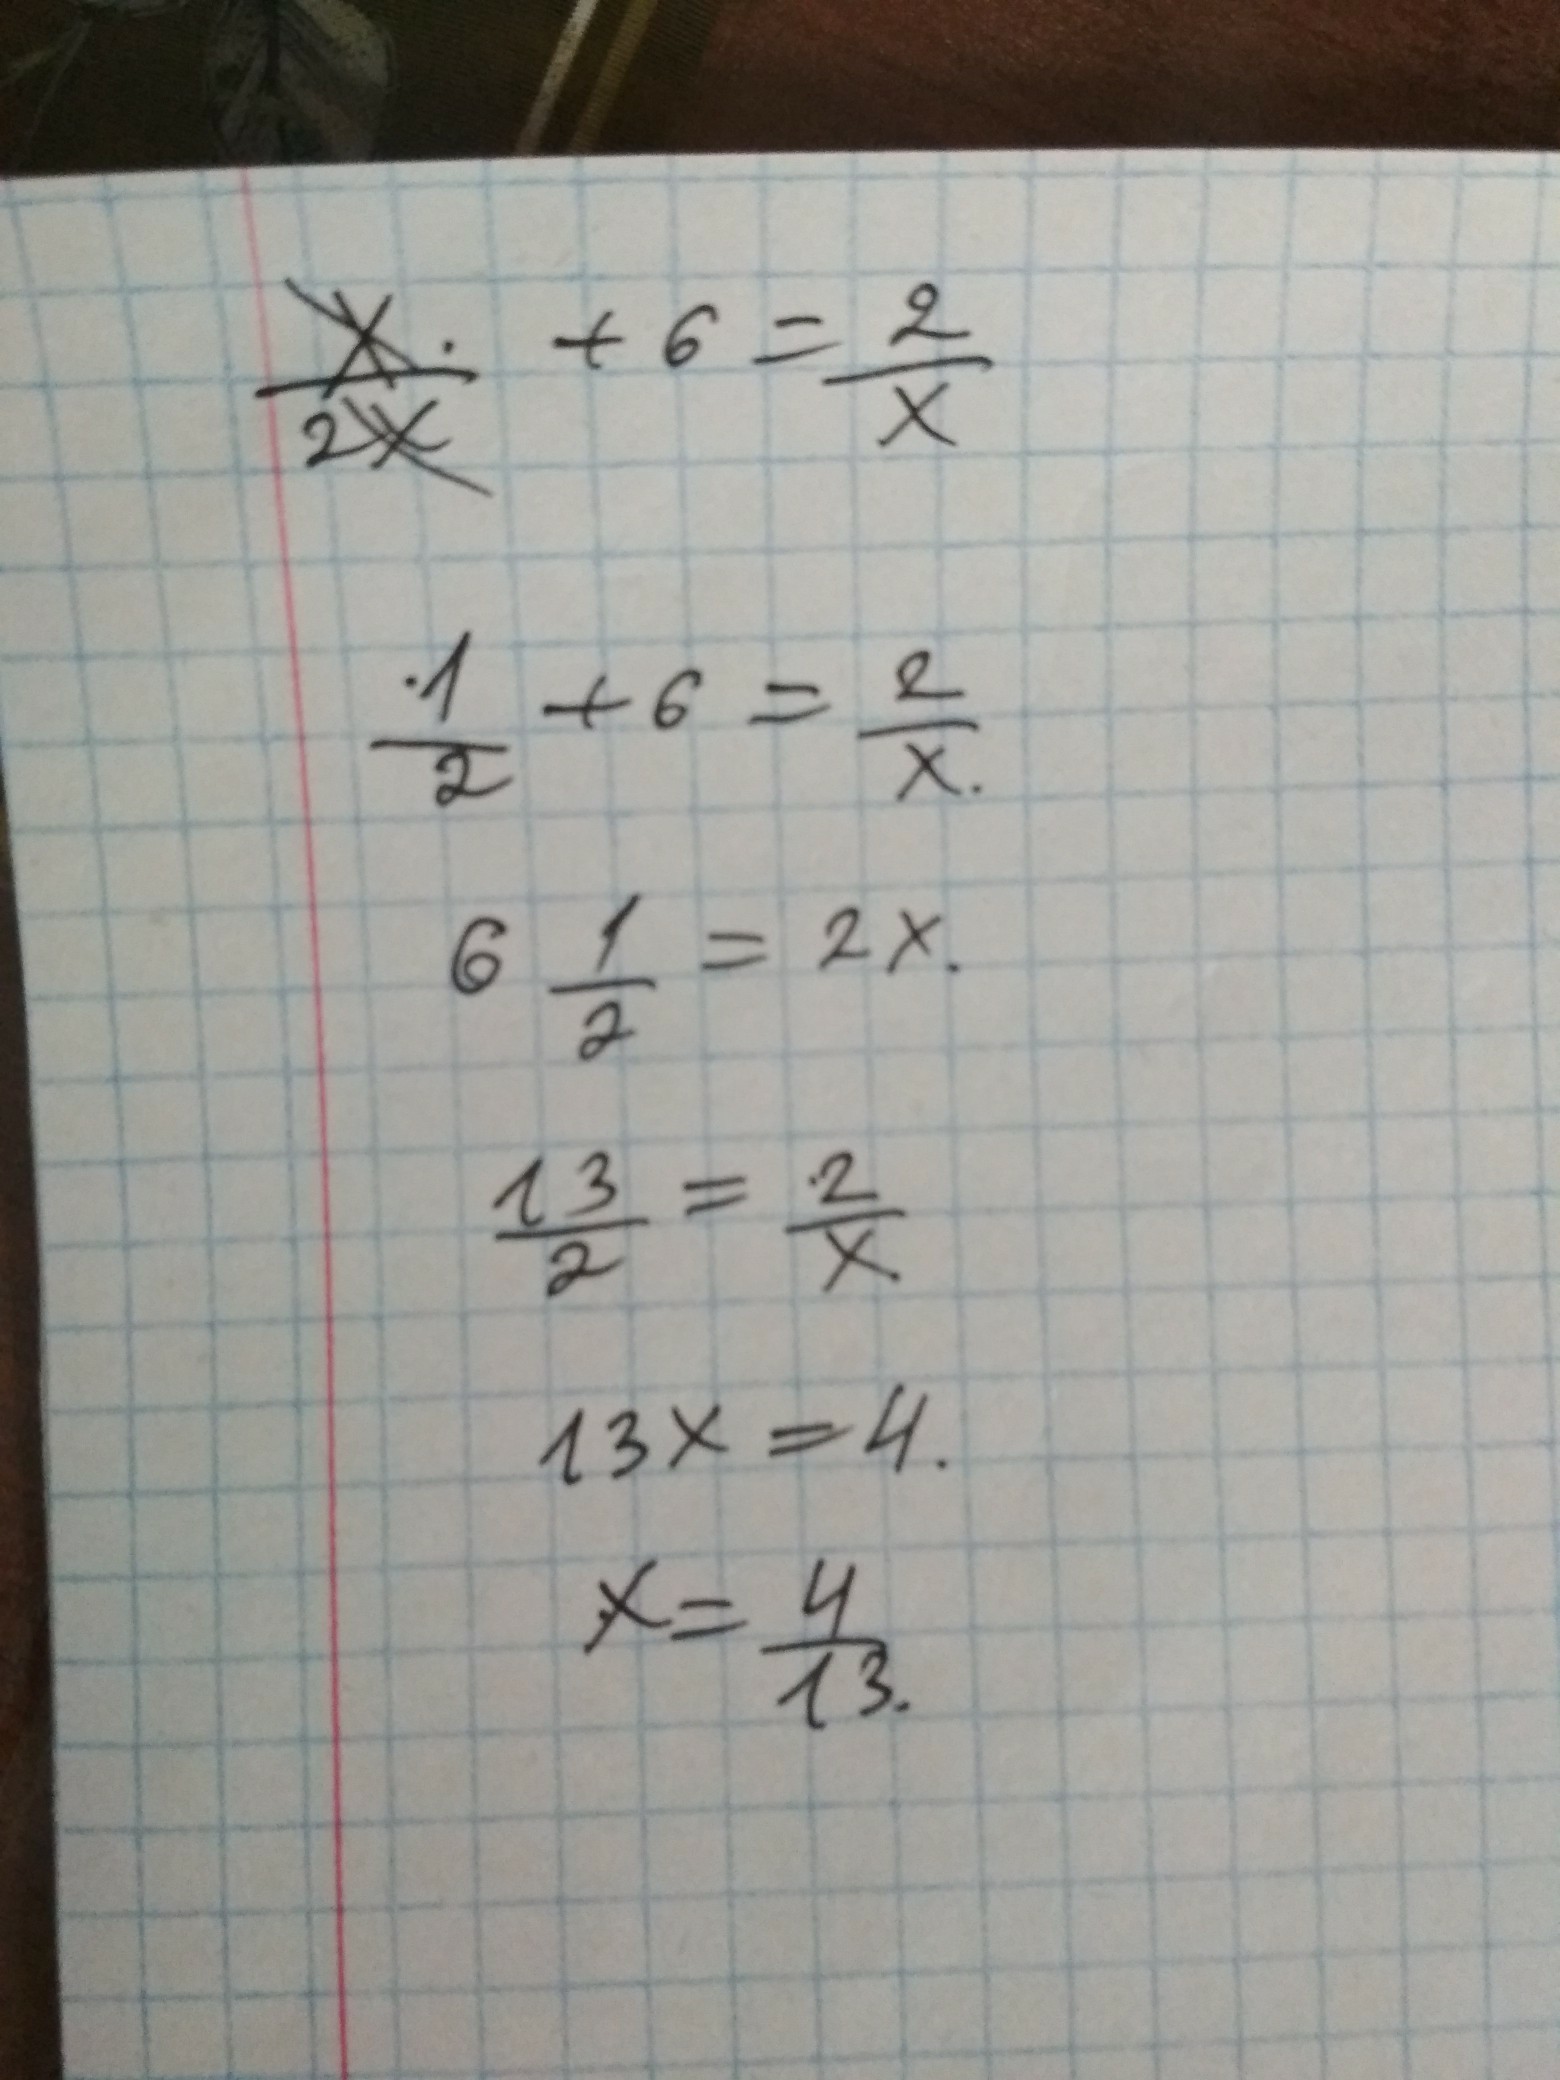 x/2x + 6 = 2/x
1/2 + 6 = 2/x.
6 1/2 = 2x.
13/2 = 2/x.
13x = 4.
x = 4/13.